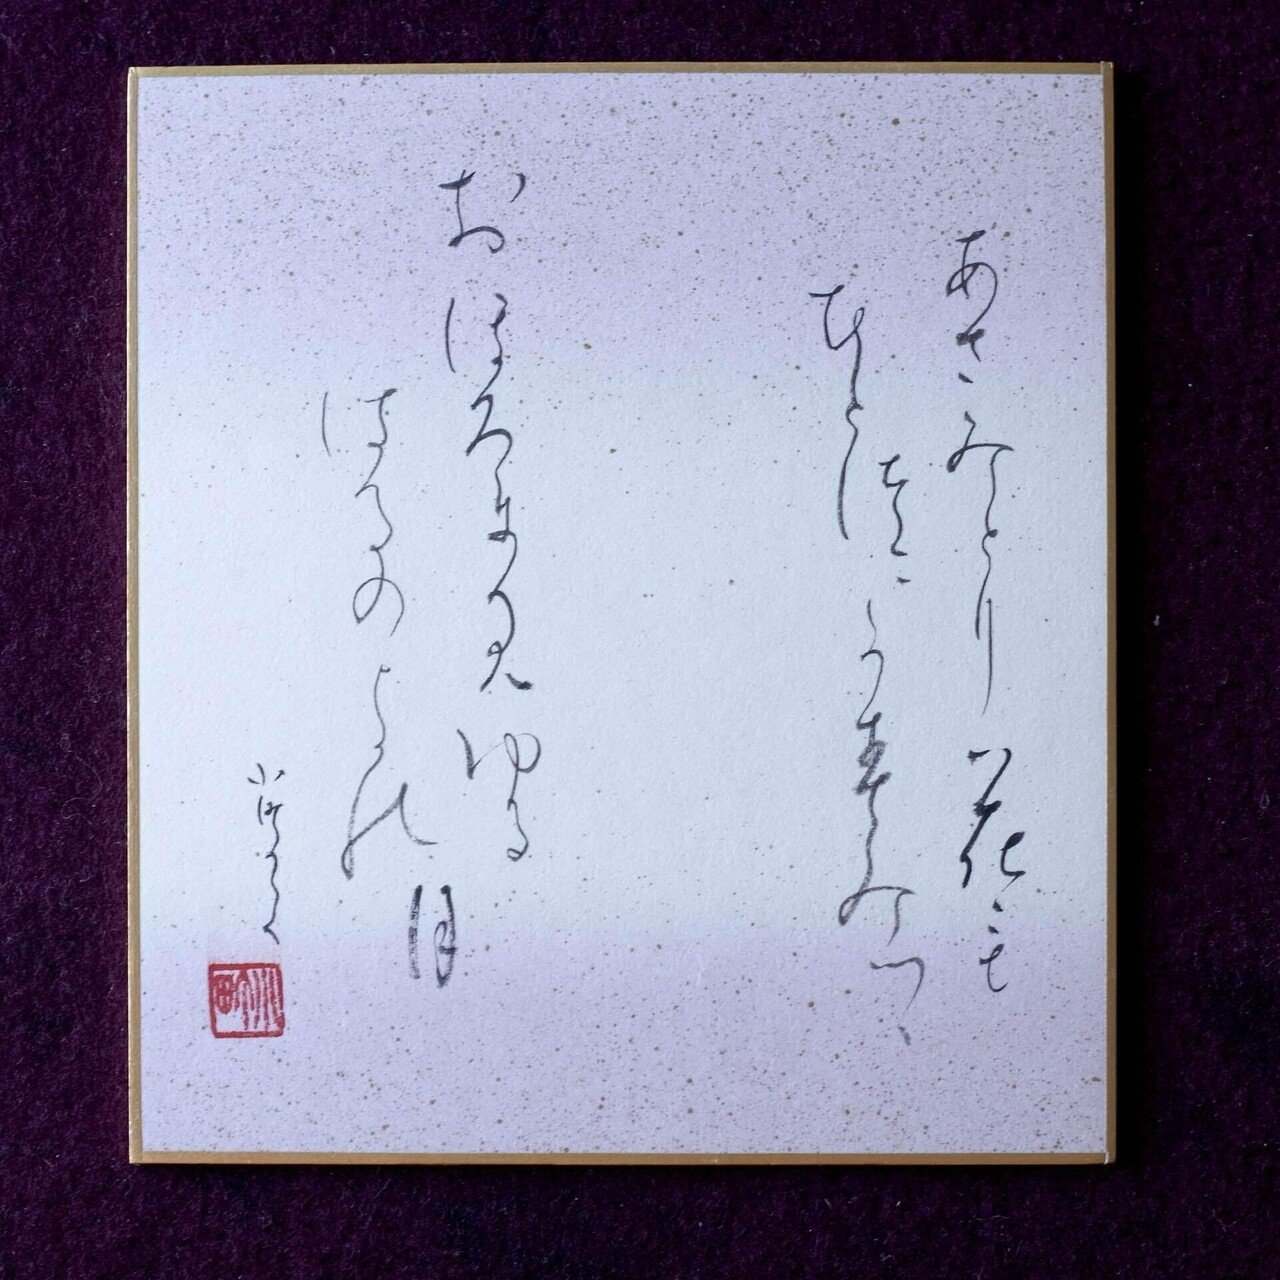 あさみとり花も
ひとつにかすみつゝ
おほろに見ゆる
はるのよの月